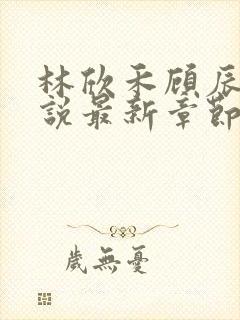 林欣禾顧辰
說最新章節
歲無憂